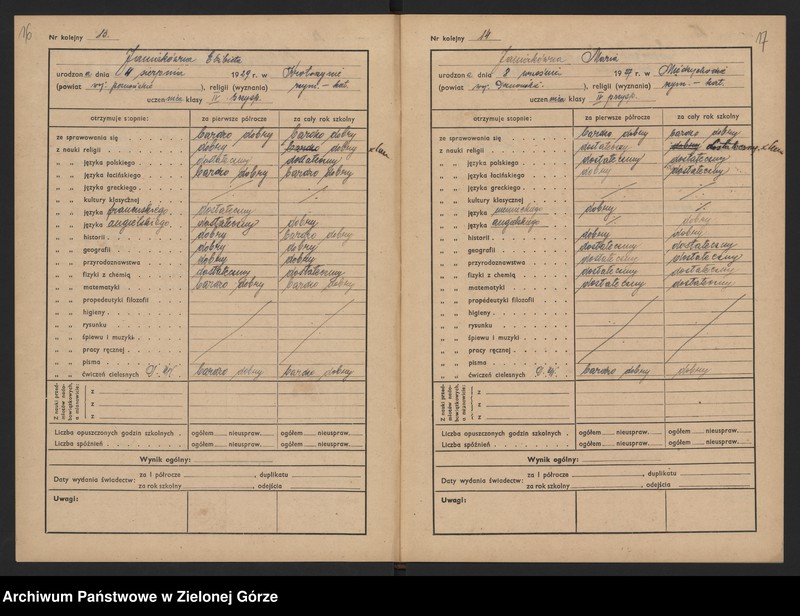 16
Nr kolejny 13.
Elżbieta
urodzona dnia 11 sierpnia 1929 r. w Krotoszynie
(powiat woj. poznańskie), religii (wyznania) rzym. – kat.
uczennica klasy IV przysp.
otrzymuje stopnie: za pierwsze półrocze za cały rok szkolny
ze sprawowania się bardzo dobry bardzo dobry
z nauki religii dobry bardzo dobry
„ „ języka polskiego dostateczny dostateczny
„ „ języka łacińskiego bardzo dobry bardzo dobry
„ „ języka greckiego
„ „ kultury klasycznej
„ „ języka francuskiego dostateczny
„ „ języka angielskiego dostateczny dobry
„ „ historii dobry bardzo dobry
„ „ geografii dobry dobry
„ „ przyrodoznawstwa dobry dobry
„ „ fizyki z chemią dostateczny dostateczny
„ „ matematyki bardzo dobry bardzo dobry
„ „ propedeutyki filozofii
„ „ higieny
„ „ rysunku
„ „ śpiewu i muzyki
„ „ pracy ręcznej
„ „ pisma
„ „ ćwiczeń cielesnych bardzo dobry bardzo dobry
Z nauki przedmiotów nadobowiązkowych, a mianowicie:
z
z
z
Liczba opuszczonych godzin szkolnych ogółem nieuspraw. ogółem nieuspraw.
Liczba spóźnień ogółem nieuspraw. ogółem nieuspraw.
Wynik ogólny:
Daty wydania świadectw: za I półrocze, duplikatu
za rok szkolny, odejścia
Uwagi:
17
Nr kolejny 14
Maria
urodzona dnia 8 19 r. w
(powiat woj.), religii (wyznania) rzym. – kat.
uczennica klasy IV przysp.
otrzymuje stopnie: za pierwsze półrocze za cały rok szkolny
ze sprawowania się bardzo dobry bardzo dobry
z nauki religii dostateczny dobry dostateczny
„ „ języka polskiego dostateczny dostateczny
„ „ języka łacińskiego dobry dostateczny
„ „ języka greckiego
„ „ kultury klasycznej
„ „ języka niemieckiego dobry
„ „ języka angielskiego dobry
„ „ historii dobry dobry
„ „ geografii dostateczny dostateczny
„ „ przyrodoznawstwa dostateczny dostateczny
„ „ fizyki z chemią dostateczny dostateczny
„ „ matematyki dostateczny dostateczny
„ „ propedeutyki filozofii
„ „ higieny
„ „ rysunku
„ „ śpiewu i muzyki
„ „ pracy ręcznej
„ „ pisma
„ „ ćwiczeń cielesnych bardzo dobry dobry
Z nauki przedmiotów nadobowiązkowych, a mianowicie:
z
z
z
Liczba opuszczonych godzin szkolnych ogółem nieuspraw. ogółem nieuspraw.
Liczba spóźnień ogółem nieuspraw. ogółem nieuspraw.
Wynik ogólny:
Daty wydania świadectw: za I półrocze, duplikatu
za rok szkolny, odejścia
Uwagi:
Archiwum Państwowe w Zielonej Górze